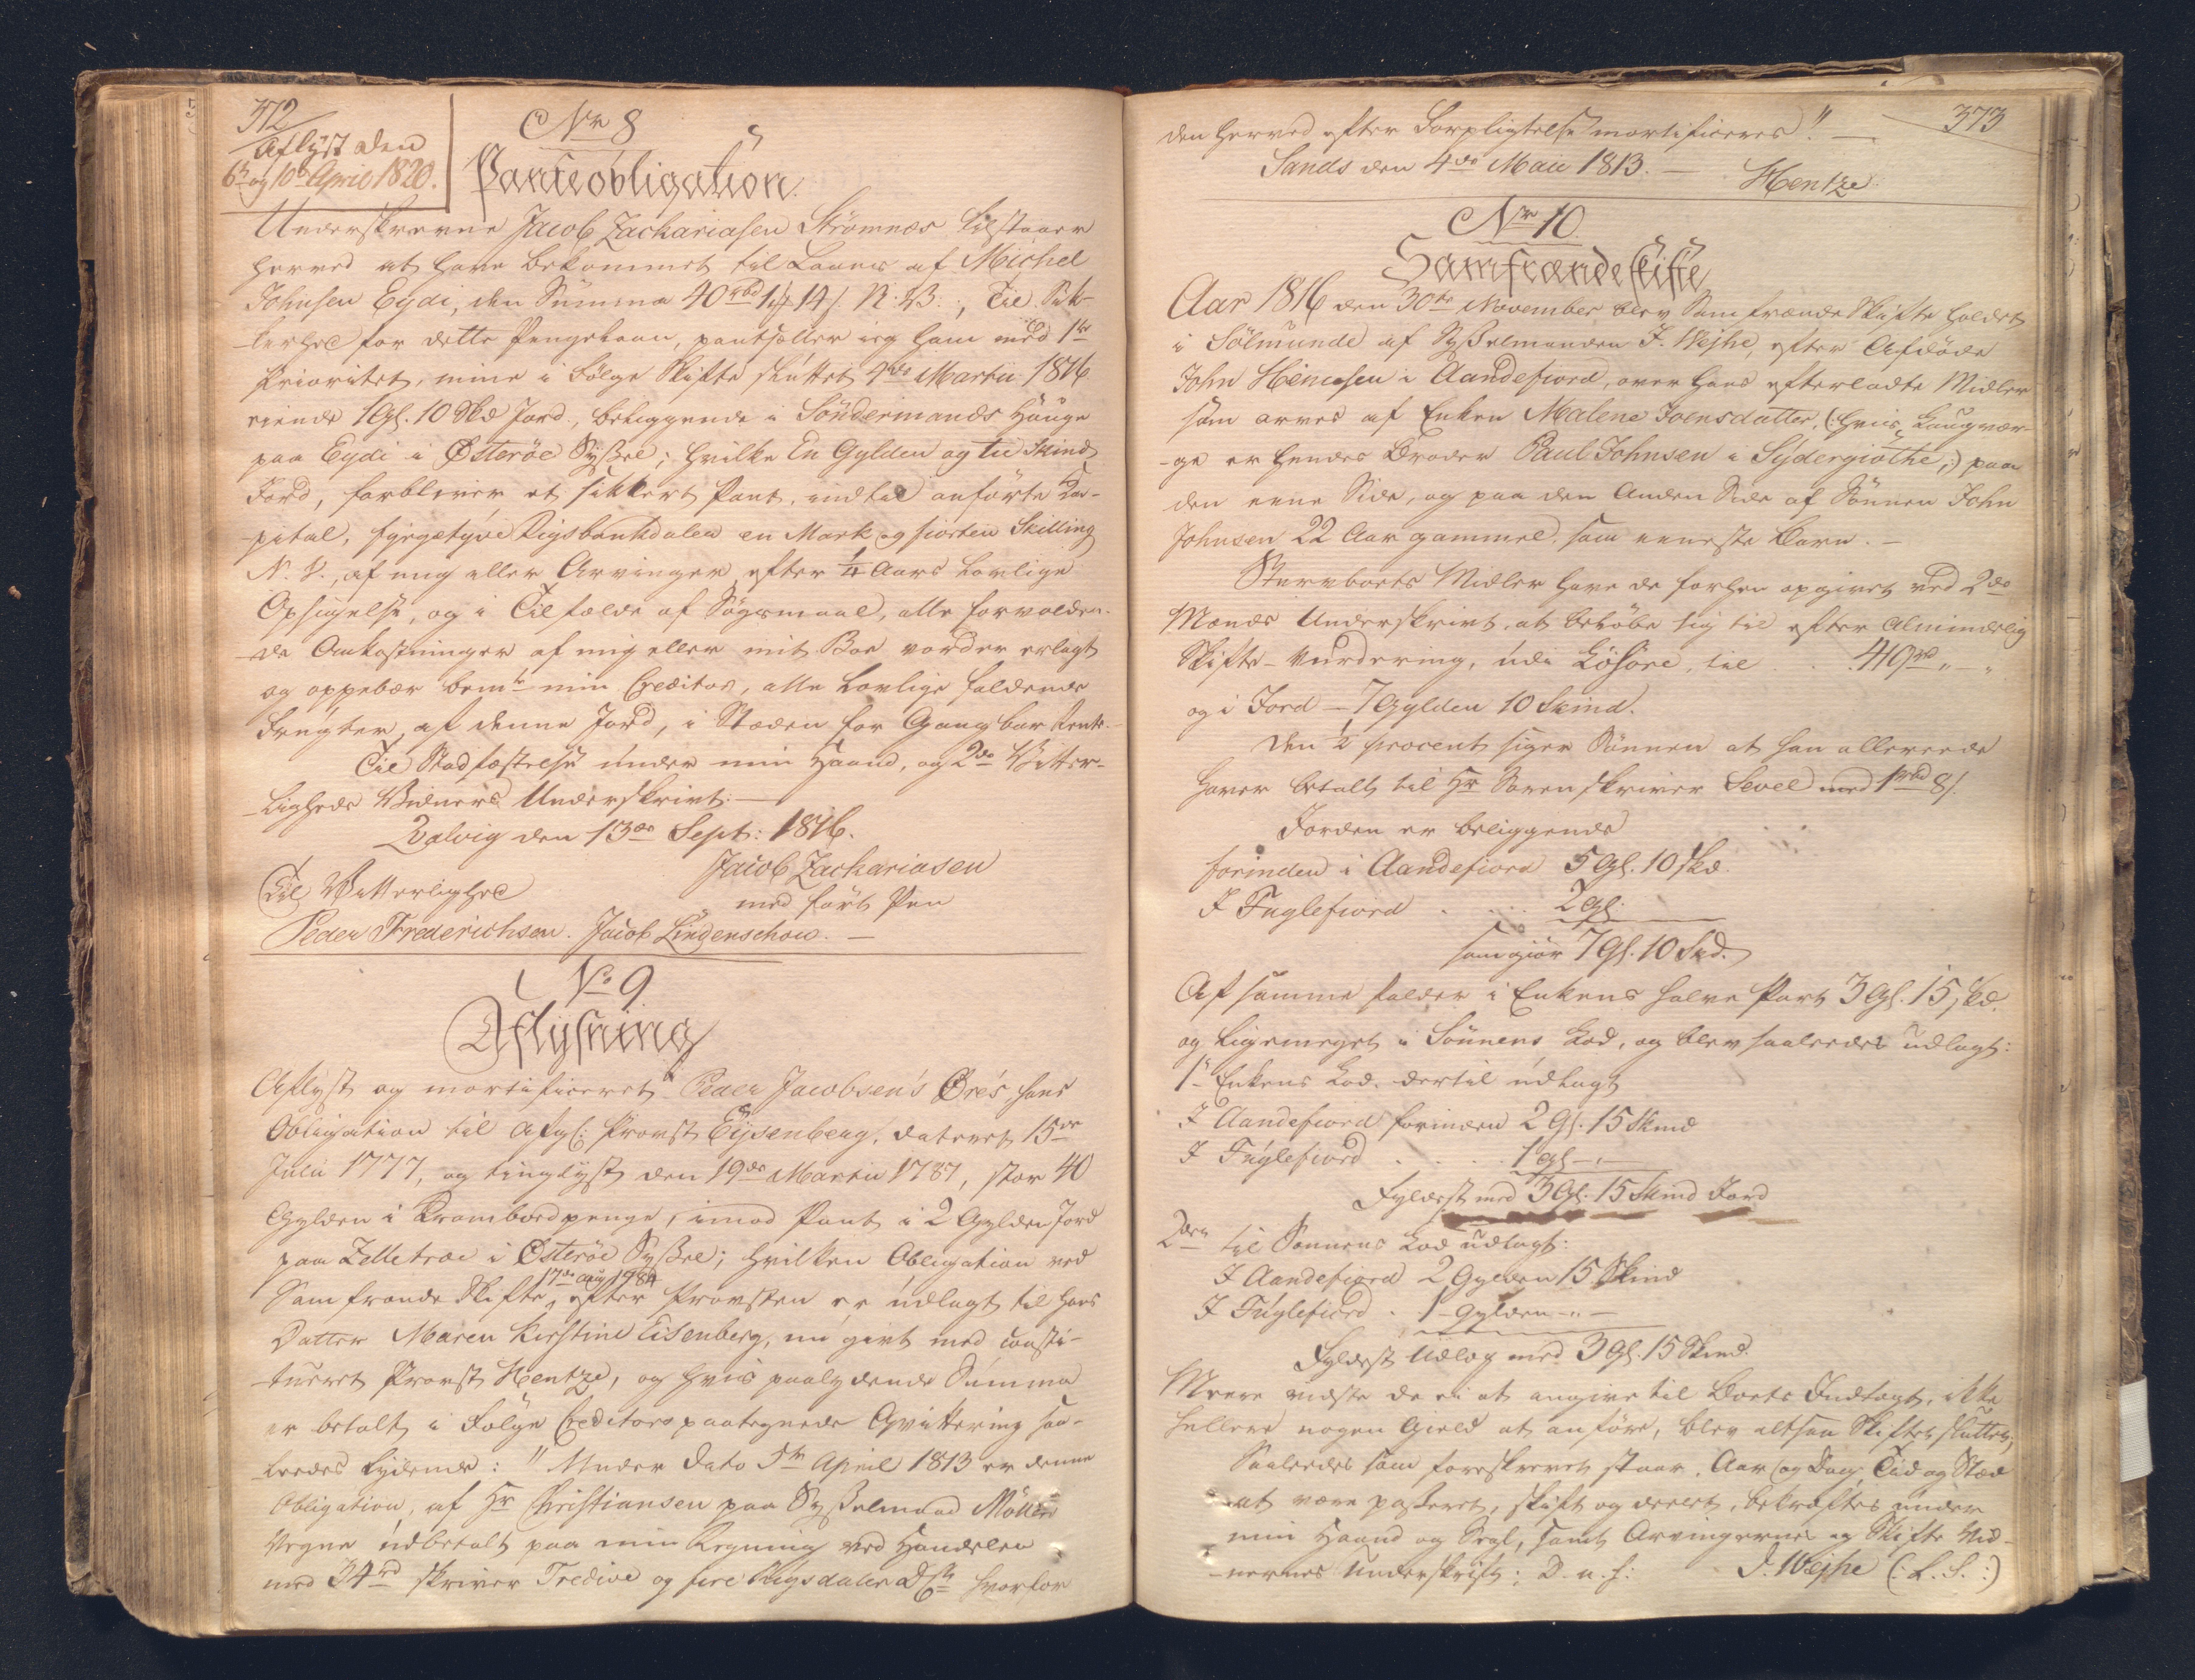 372
Aflyst den
6te og 10de April 1820.
No 8
Panteobligation.
Underskrevne Jacob Zachariasen Strömnæs tilstaaer
herved at have bekommet til Laans af Michel
Johnsen Eydi, den Summa 40 rbd 1 mk 14 s. N. V.; Til Sik-
kerhed for dette Pengelaan, pantsætter ieg ham med 1te
Prioritet, mine i Fölge Skifte sluttet 4de Martii 1816
eiende 1 Gl. 10 Skd Jord, beliggende i Söndermands Hauge
paa Eydi i Österöe Syssel; hvilke En Gylden og tie Skind
Jord, forbliver et sikkert Pant, indtil anförte Ca-
pital, fyrgetyve Rigsbankdaler en Mark og fiorten Skilling
N. V., af mig eller Arvinger efter 1/4 Aars lovlige
Opsigelse, og i Tilfælde af Sögsmaal, alle forvolden-
de Omkostninger af mig eller mit Boe vorder erlagt
og oppebær bemte min Creditor, alle lovlige faldende
Frugter, af denne Jord, i Stæden for Gangbar Rente.
Til Stadfæstelse under min Haand, og 2de Vitter-
ligheds Vidners Underskrivt.
Qvalvig den 13de Sept: 1816.
Jacob Zachariasen
med fört Pen
Til Vitterlighed
Peder Frederichsen. Jacob Lindenschow.
No 9
Aflysning
Aflyst og mortificeret Peder Jacobsen's Öre's, hans
Obligation til afg: Provst Eysenberg, dateret 15de
Julii 1777, og tinglyst den 19de Martii 1787, stor 40
Gylden i Krambodpenge, imod Pant i 2 Gylden Jord
paa Zelletræ i Österöe Syssel; hvilken Obligation ved
17de Aug 1784
Samfrænde Skifte, efter Provsten er udlagt til hans
Datter Maren Kirstine Eisenberg, nu givt med consti-
tueret Provst Hentze, og hvis paalydende Summa
er betalt i Fölge Creditors paategnede Qvittering saa-
leedes lydende: "Under Dato 5te April 1813 er denne
Obligation, af Hr Christiansen paa Sysselmand Möllers
Vegne udbetalt paa min Regning ved Handelen
med 34 rd skriver Tredive og fire Rigsdaler Dske hvorfor
373
den herved efter Forpligtelse mortificeres!" —
Sands den 4de Maii 1813. — Hentze
No 10
Samfrændeskifte
Aar 1816 den 30te November blev Samfrænde Skifte holdet
i Sölmunde af Sysselmanden J. Wejhe, efter Afdöde
John Hemesen i Aandefiord, over hans efterladte Midler
som arves af Enken Malene Joensdatter, (: hvis Laugvær-
-ge er hendes Broder Paul Johnsen i Sydergiöthe;) paa
den eene Side, og paa den Anden Side af Sönnen John
Johnsen 22 Aar gammel, som eeneste Barn. —
Stervboets Midler have de forhen opgivet ved 2de
Mænds Underskrivt, at belöbe sig til efter almindelig
Skifte-Vurdering, udi Lösöre, til . . 40 rd „ — „
og i Jord — 7 Gylden 10 Skind.
Den 1/2 procent siger Sönnen at han allereede
haver betalt til Hr Sorenskriver Sevel med 1 rbd 8 s.
Jorden er beliggende
forinden i Aandefiord 5 Gl. 10 skd.
I Fuglefiord . . . . 2 Gl.
som giör 7 Gl. 10 Skd.
Af samme falder i Enkens halve Part 3 Gl. 15 skd.
og ligemeget i Sönnens Lod, og blev saaledes udlagt:
1o Enkens Lod, dertil udlagt
I Aandefiord forinden 2 Gl. 15 Skind
I Fuglefiord . . . . 1 Gl — „ —
Fyldest med 3 Gl. 15 Skind Jord
2den til Sönnens Lod udlagt:
I Aandefiord 2 Gylden 15 Skind
I Fuglefiord . 1 Gylden — „ —
Fyldest Udlæg med 3 Gl. 15 Skind.
Meere vidste de ei at angive til Boets Indtægt, ikke
hellere nogen Gield at anföre, blev altsaa Skiftet sluttet,
Saaleedes som foreskrevet staar, Aar og Dag, Tid og Stæd
at være passeret, skift og deelet, bekræftes under
min Haand og Segl, samt Arvingernes og Skifte Vid-
-nernes Underskrift; D. u. s: J. Wejhe (: L. S. :)